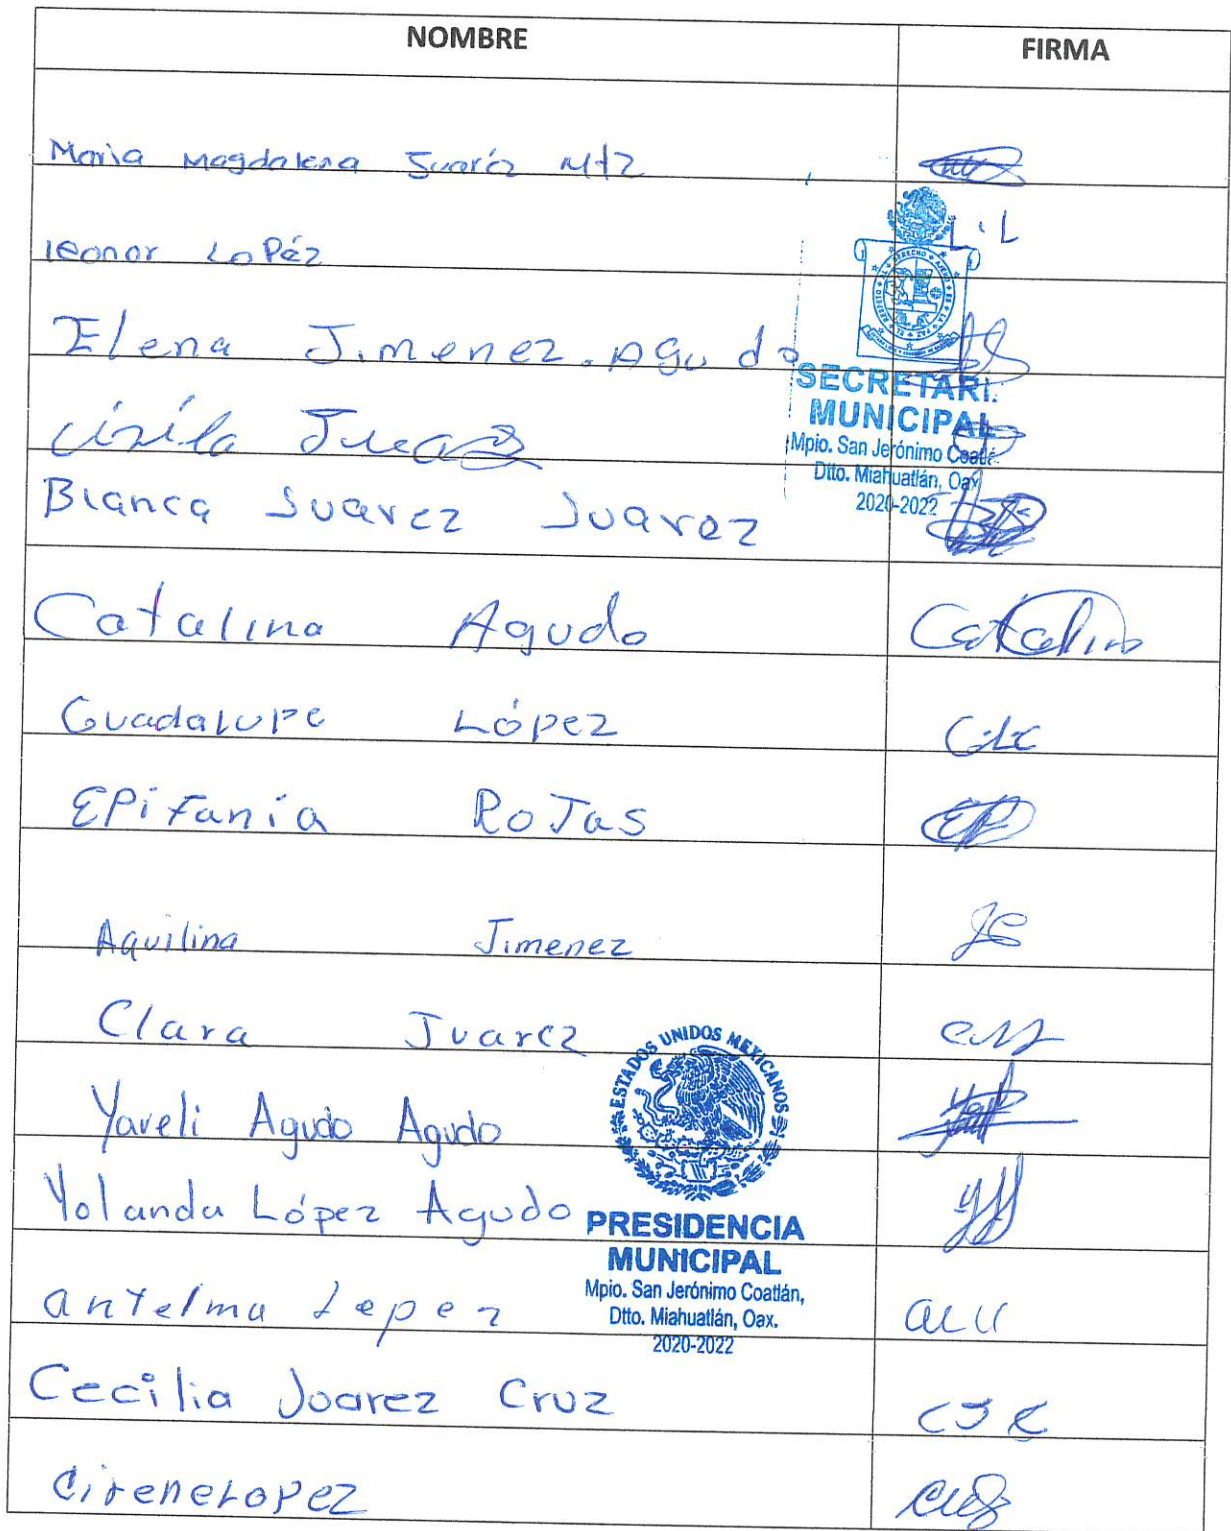 NOMBRE FIRMA
Maria Magdalena Suaréz Mtz
leonor LoPéz L.L
Elena Jimenez. Agudo
Juarez
Blanca Suarez Juarez
Catalina Agudo Catalina
Guadalupe López
EPifania RoJas
Aquilina Jimenez
Clara Juarez
Yareli Agudo Agudo
Yolanda López Agudo
antelma Lopez
Cecilia Juarez Cruz CJC
CireneLopez
SECRETARI
MUNICIPAL
Mpio. San Jerónimo Coatlá
Dtto. Miahuatlán, Oax
2020-2022
ESTADOS UNIDOS MEXICANOS
PRESIDENCIA
MUNICIPAL
Mpio. San Jerónimo Coatlán,
Dtto. Miahuatlán, Oax.
2020-2022